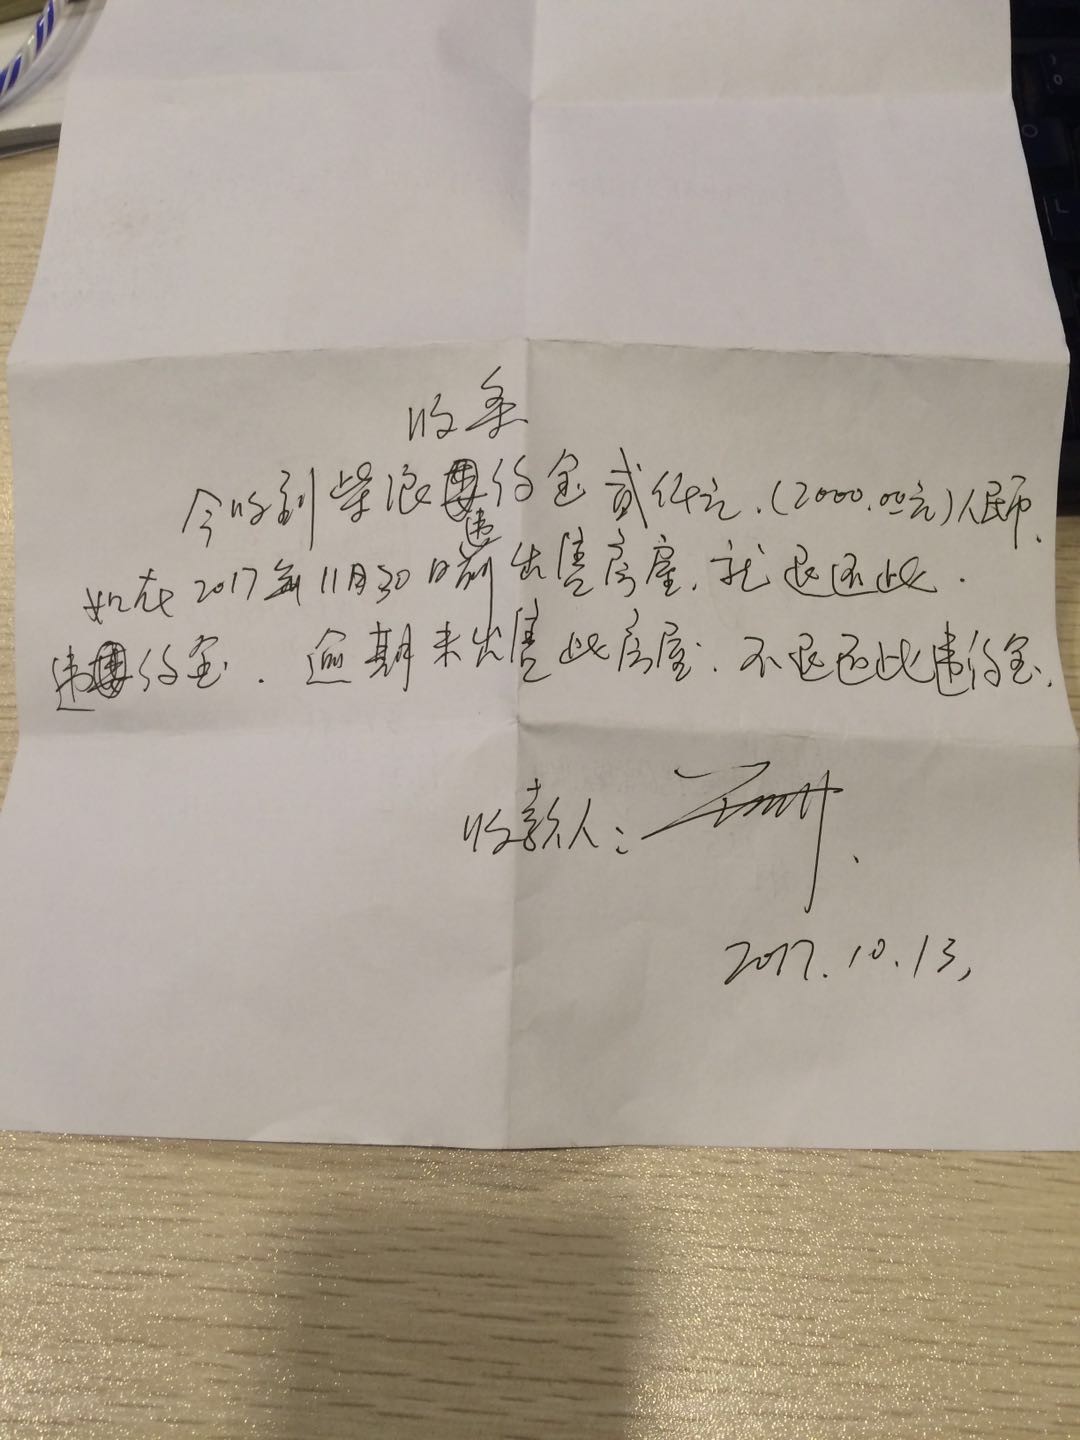 收条
今收到柴浪违约金贰仟元.(2000.00元)人民币.
如在2017年11月30日前出售房屋.就退还此.
违约金.逾期未出售此房屋.不退还此违约金.
收款人:
2017.10.13,